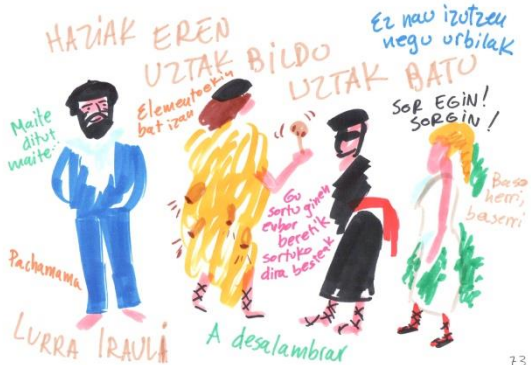 HAZIAK EREN
UZTAK BILDO
UZTAK BATU
Ez nau izutzen
negu urbilak
Maite
ditut
maite...
Elementoekin
bat izan
SOR EGIN!
SORGIN!
Gu
sortu ginen
enbor
beretik
sortuko
dira besteak
Baso
herri,
baserri
Pachamama
LURRA IRAULI
A desalambrar
73